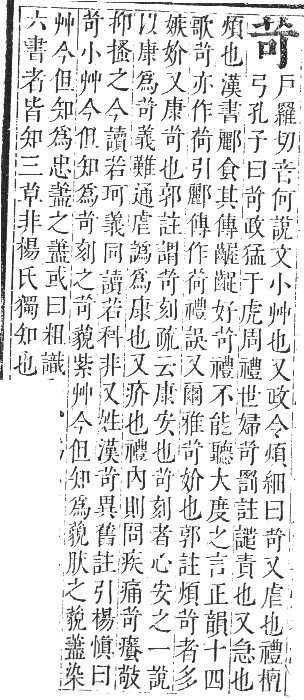 苛
戶羅切音何說文小艸也又政令煩細曰苛又虐也禮檀
弓孔子曰苛政猛于虎周禮世婦苛罰註譴責也又急也
煩也漢書酈食其傳齷齪好苛禮不能聽大度之言正韻十四
歌苛亦作荷引酈傳作荷禮誤又爾雅苛妎也郭註煩苛者多
嫉妎又康苛也郭註謂苛刻疏云康安也苛刻者心安之一說
以康為苛義難通虐譌為康也又疥也禮內則問疾痛苛癢敬
抑搔之今讀若珂義同讀若科非又姓漢苛異舊註引楊慎曰
苛小艸今但知為苛刻之苛藐紫艸今但知為藐肰之藐藎染
艸今但知為忠藎之藎或曰粗識
六書者皆知三草非楊氏獨知也